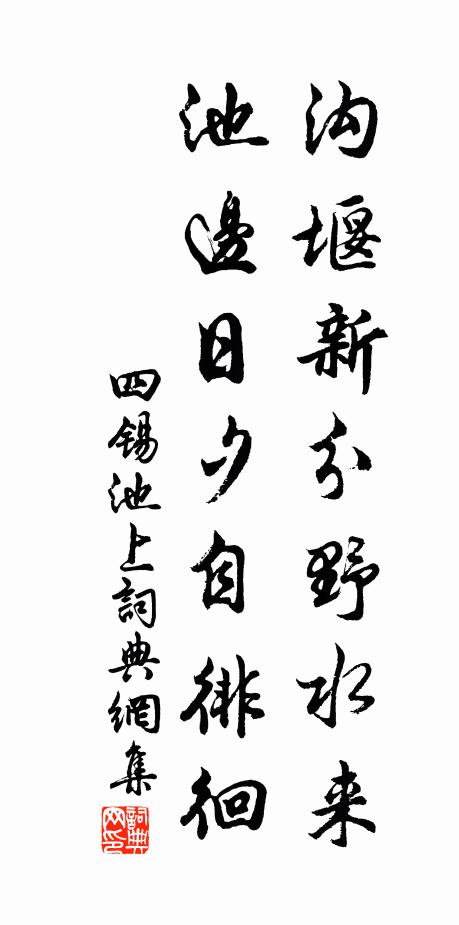 沟堰新分野水来
池邊日夕自徘徊
四锡池上詞典網集
詞典网印